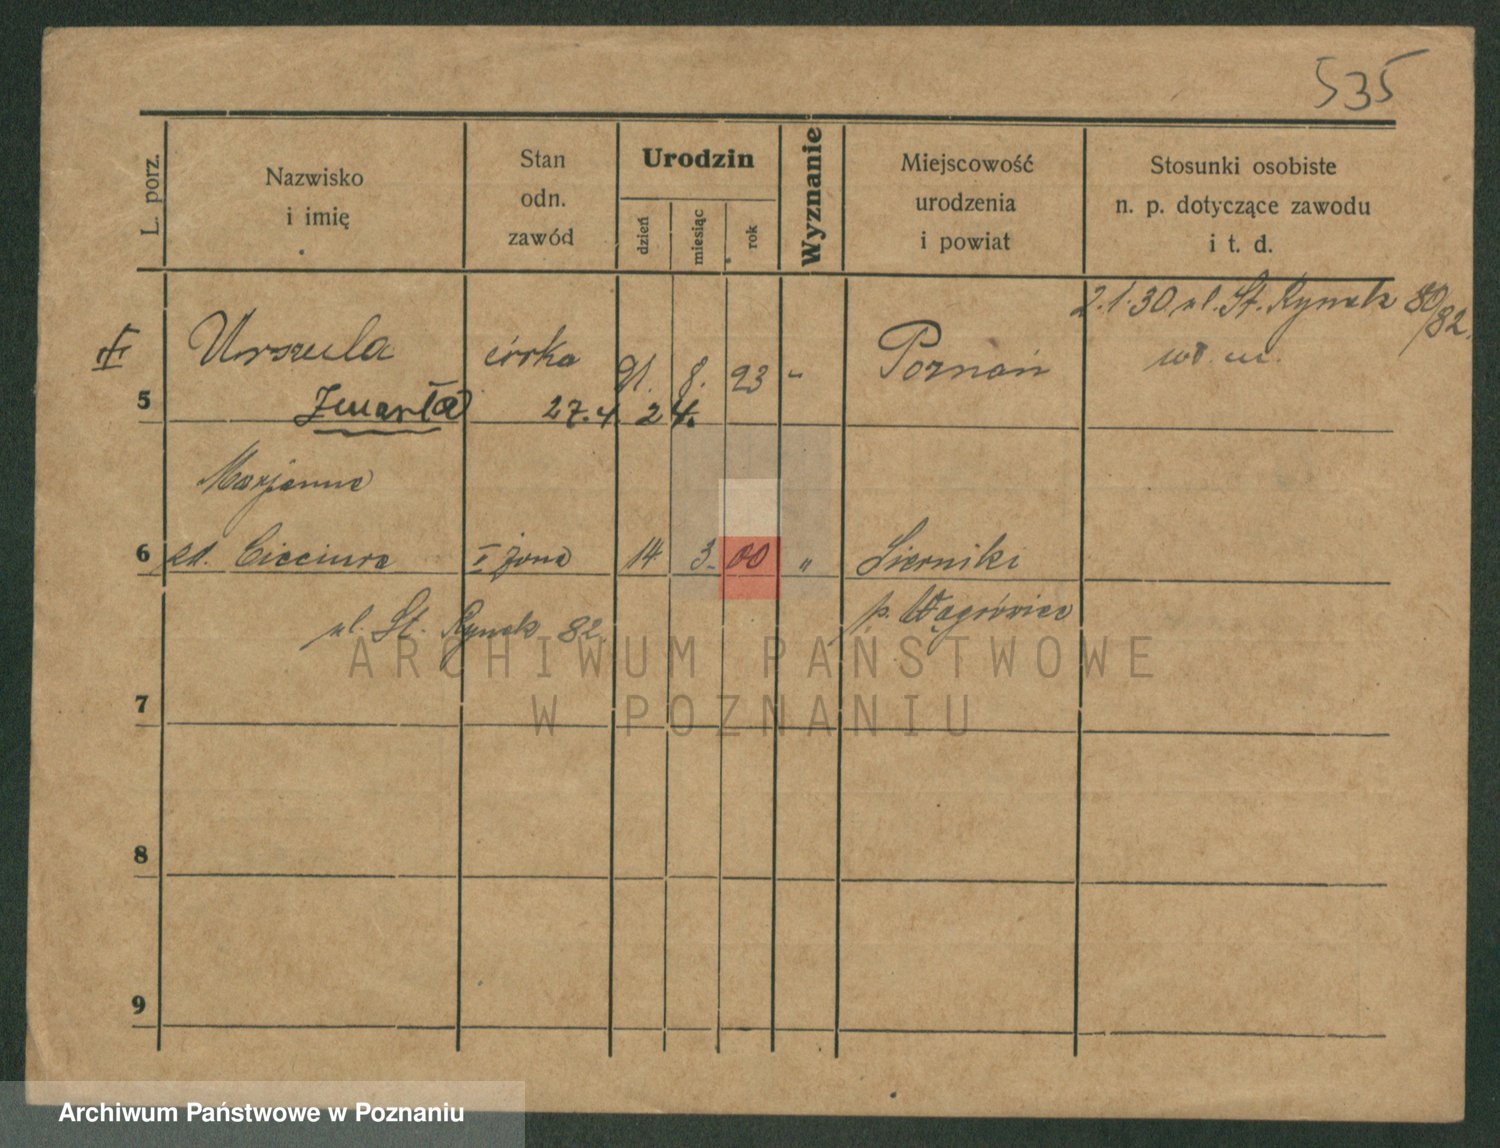 535
L. porz.
Nazwisko
i imię
Stan
odn.
zawód
Urodzin
dzień
miesiąc
rok
Wyznanie
Miejscowość
urodzenia
i powiat
Stosunki osobiste
n. p. dotyczące zawodu
i t. d.
2.1.30 ul. St. Rynek 80/82
5 Urszula córka 21. 8. 23 " Poznań
Zmarła 27.4.24.
Marjanna
6 zd. Cieciura I żona 14 3. 00 " Sierniki
ul. St. Rynek 82 p. Wągrówiec
7
8
9
ARCHIWUM PAŃSTWOWE
W POZNANIU
Archiwum Państwowe w Poznaniu